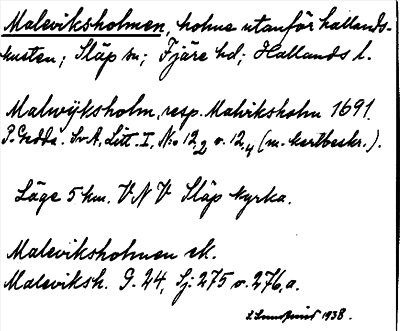 Maleviksholmen, holme utanför hallands-
kusten; Släp sn; Fjäre hd; Hallands l.
Malwijksholm, resp. Malviksholm 1691.
P. Gedda. Sv. A, Litt. I, No 12₂ o. 12₄ (m. kartbeskr.).
Läge 5 km. VNV Släp kyrka.
Maleviksholmen ek.
Maleviksh. G. 24, Sj: 275 o. 276, a.
1938.